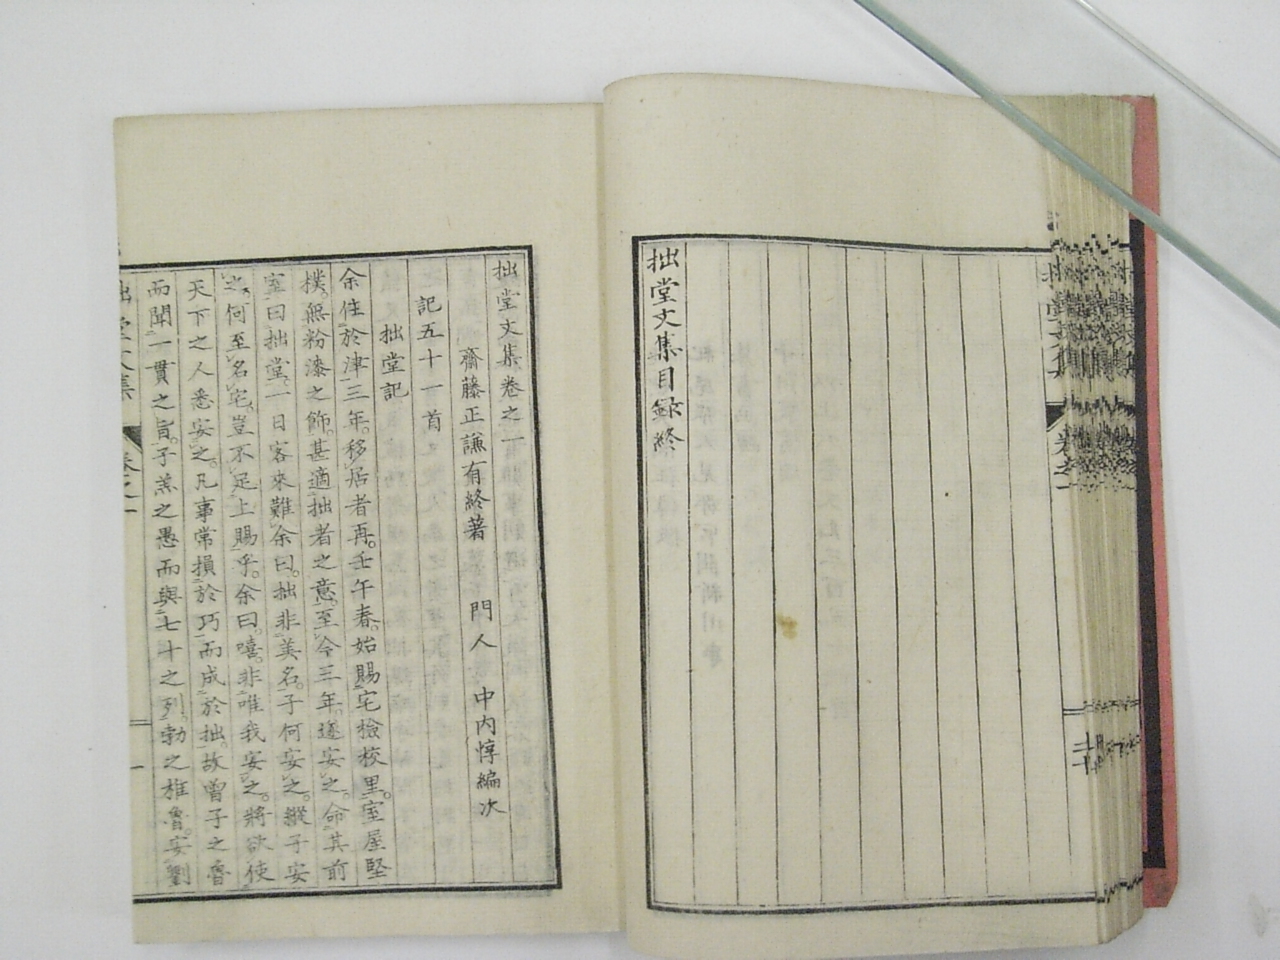 拙堂文集目錄終
拙堂文集卷之一
齋藤正謙有終著　門人　中內惇編次
記五十一首
拙堂記
余住於津三年。移居者再。壬午春。始賜宅檢校里。室屋堅
樸。無粉漆之飾。甚適拙者之意。至今三年。遂安之。命其前
室曰拙堂。一日客來難余曰。拙非美名。子何安之。縱子安
之。何至名宅。豈不足上賜乎。余曰。嘻。非唯我安之。將欲使
天下之人悉安之。凡事常損於巧而成於拙。故曾子之魯
而聞一貫之旨。子羔之愚而與七十之列。勃之椎魯。安劉
拙堂文集
卷之一